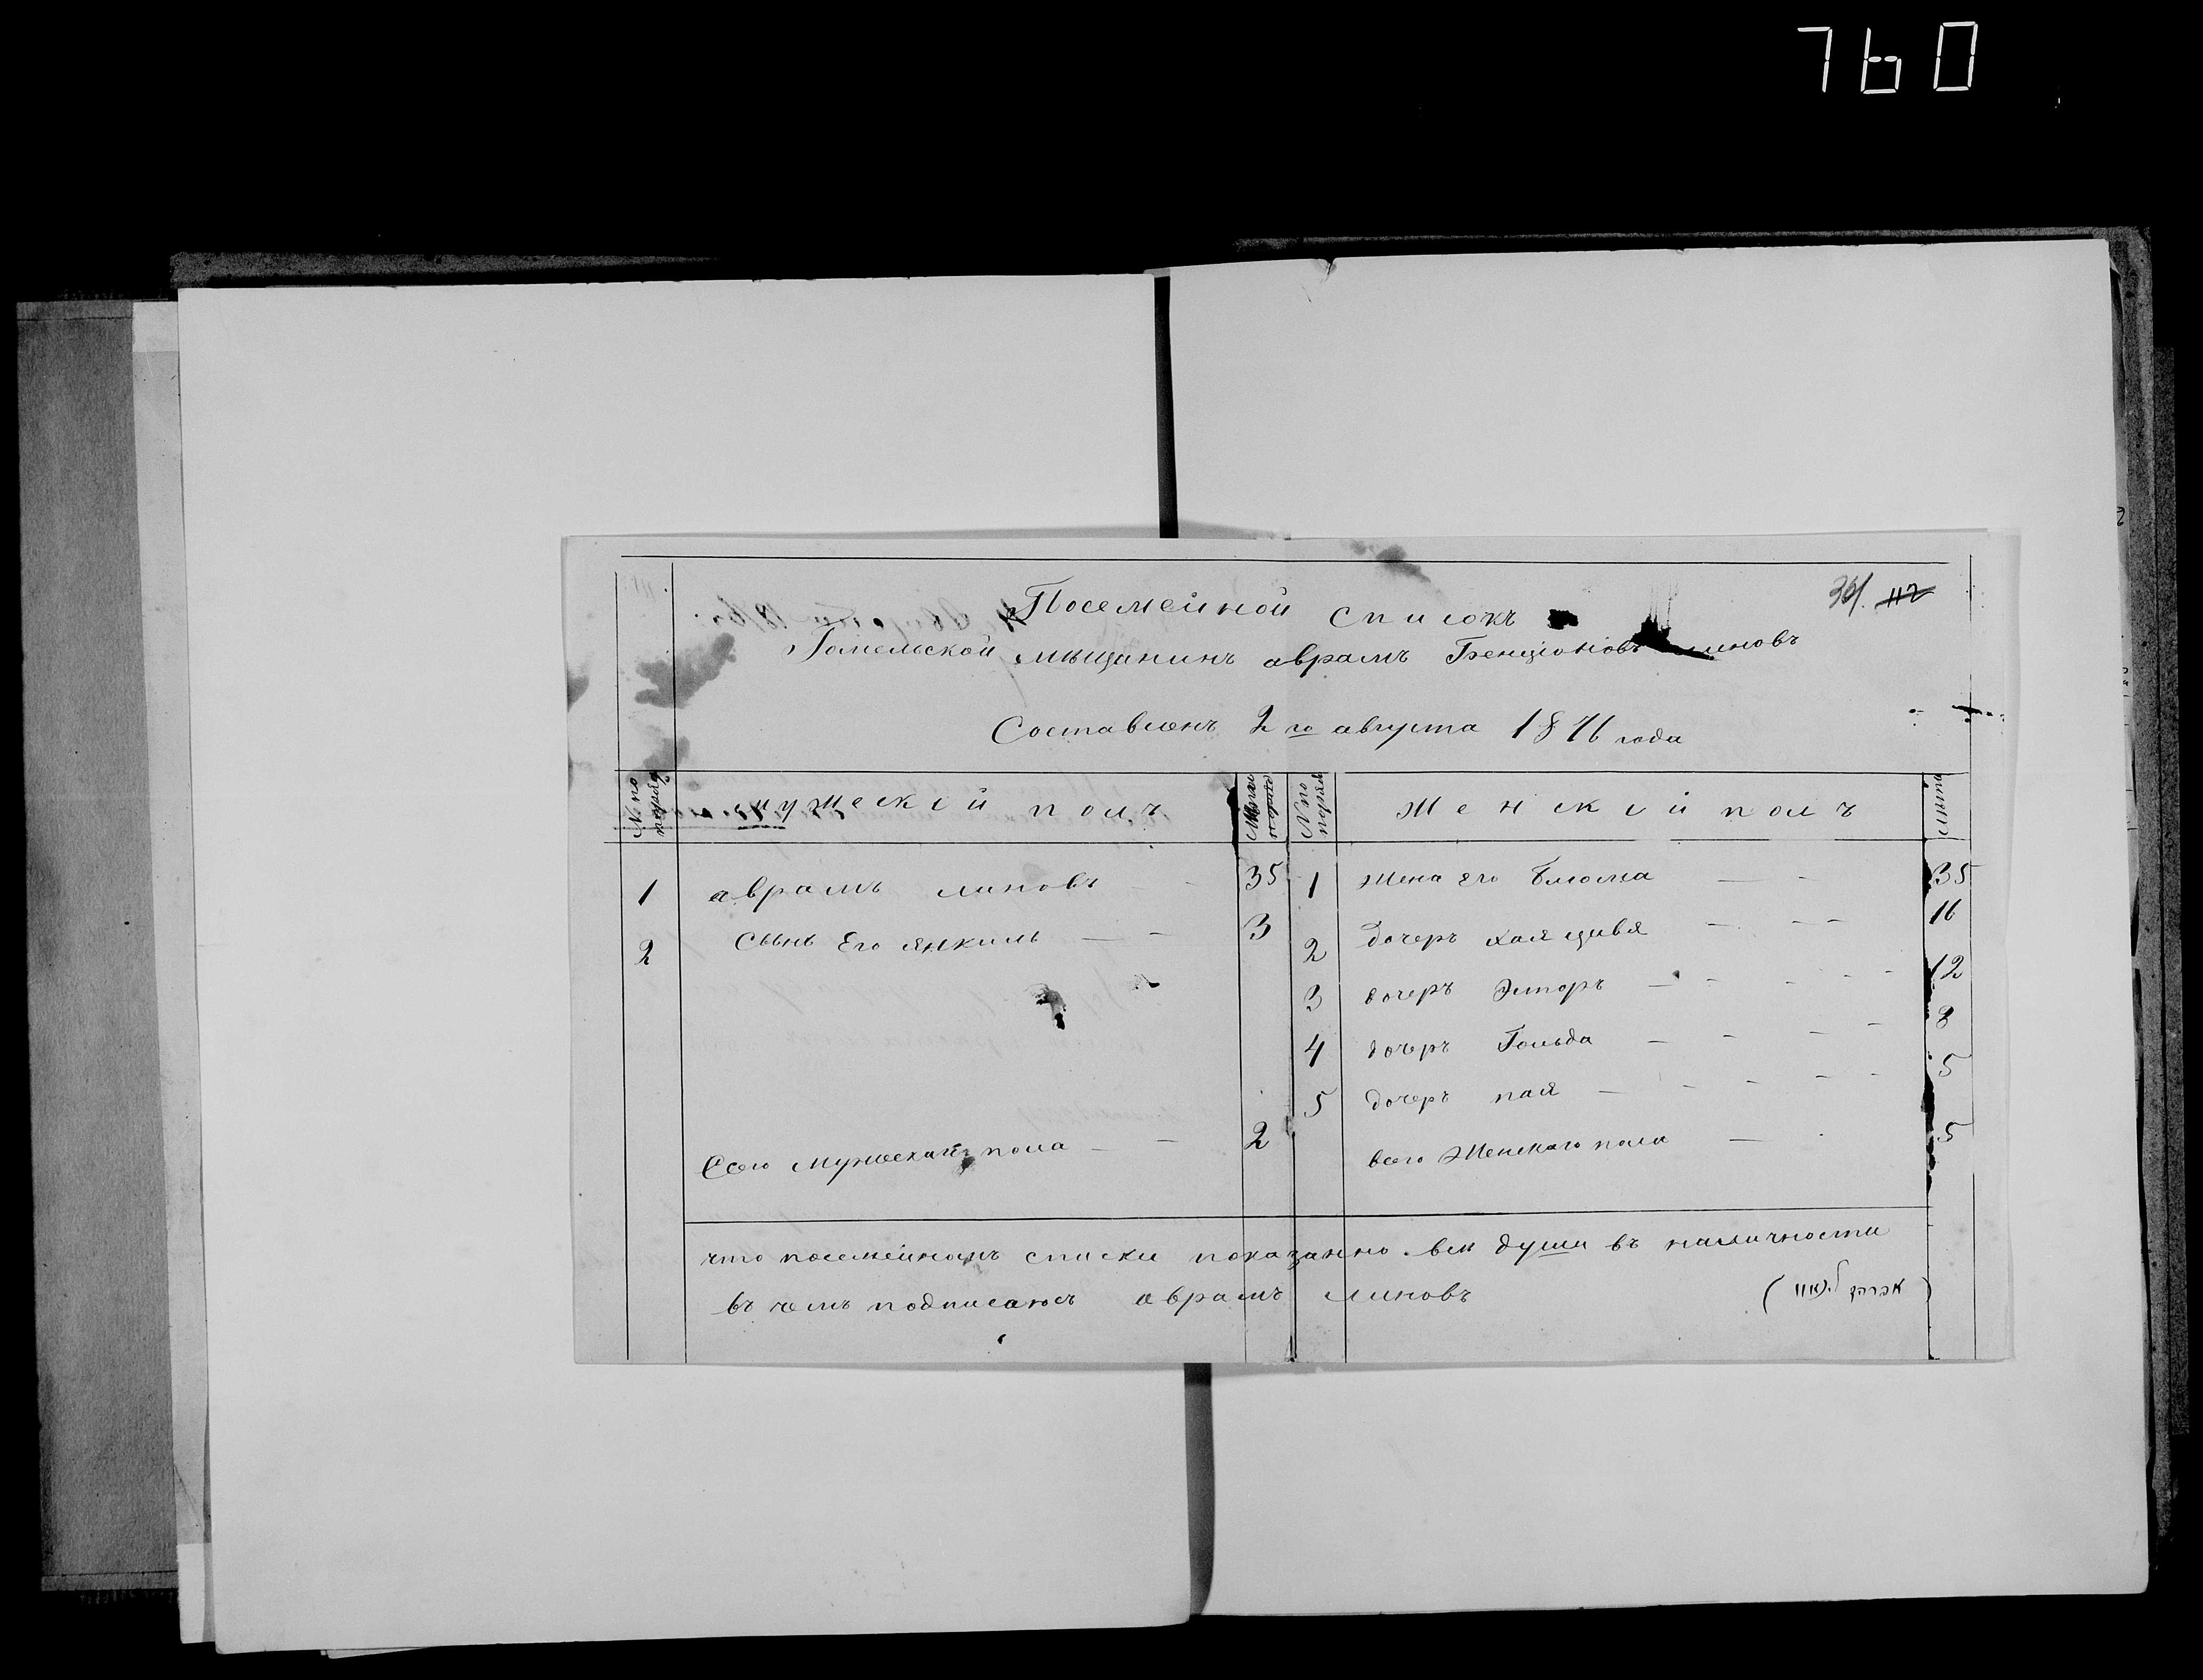 760
Посемейной списокъ
Гомельской мещанинъ аврамъ Бенціоновъ линовъ
Составленъ 2го августа 1876 года
№ по поряд
мужескій полъ
Лѣта
№ по поряд
Женскій полъ
лѣта
1 аврамъ линовъ — — 35 1 жена его Блюма — — 35
2 Сынъ Его янкиль — — 3 2 дочеръ хая цивя — — — 16
3 дочеръ Эстеръ — — — — 12
4 дочеръ Гольда — — — — 8
5 дочеръ пая — — — — — 5
всего Мужескаго пола — — 2 всего Женскаго пола — 5
что посемейномъ списки показанно всѣ души въ наличности
въ чемъ подписаюсъ аврамъ линовъ